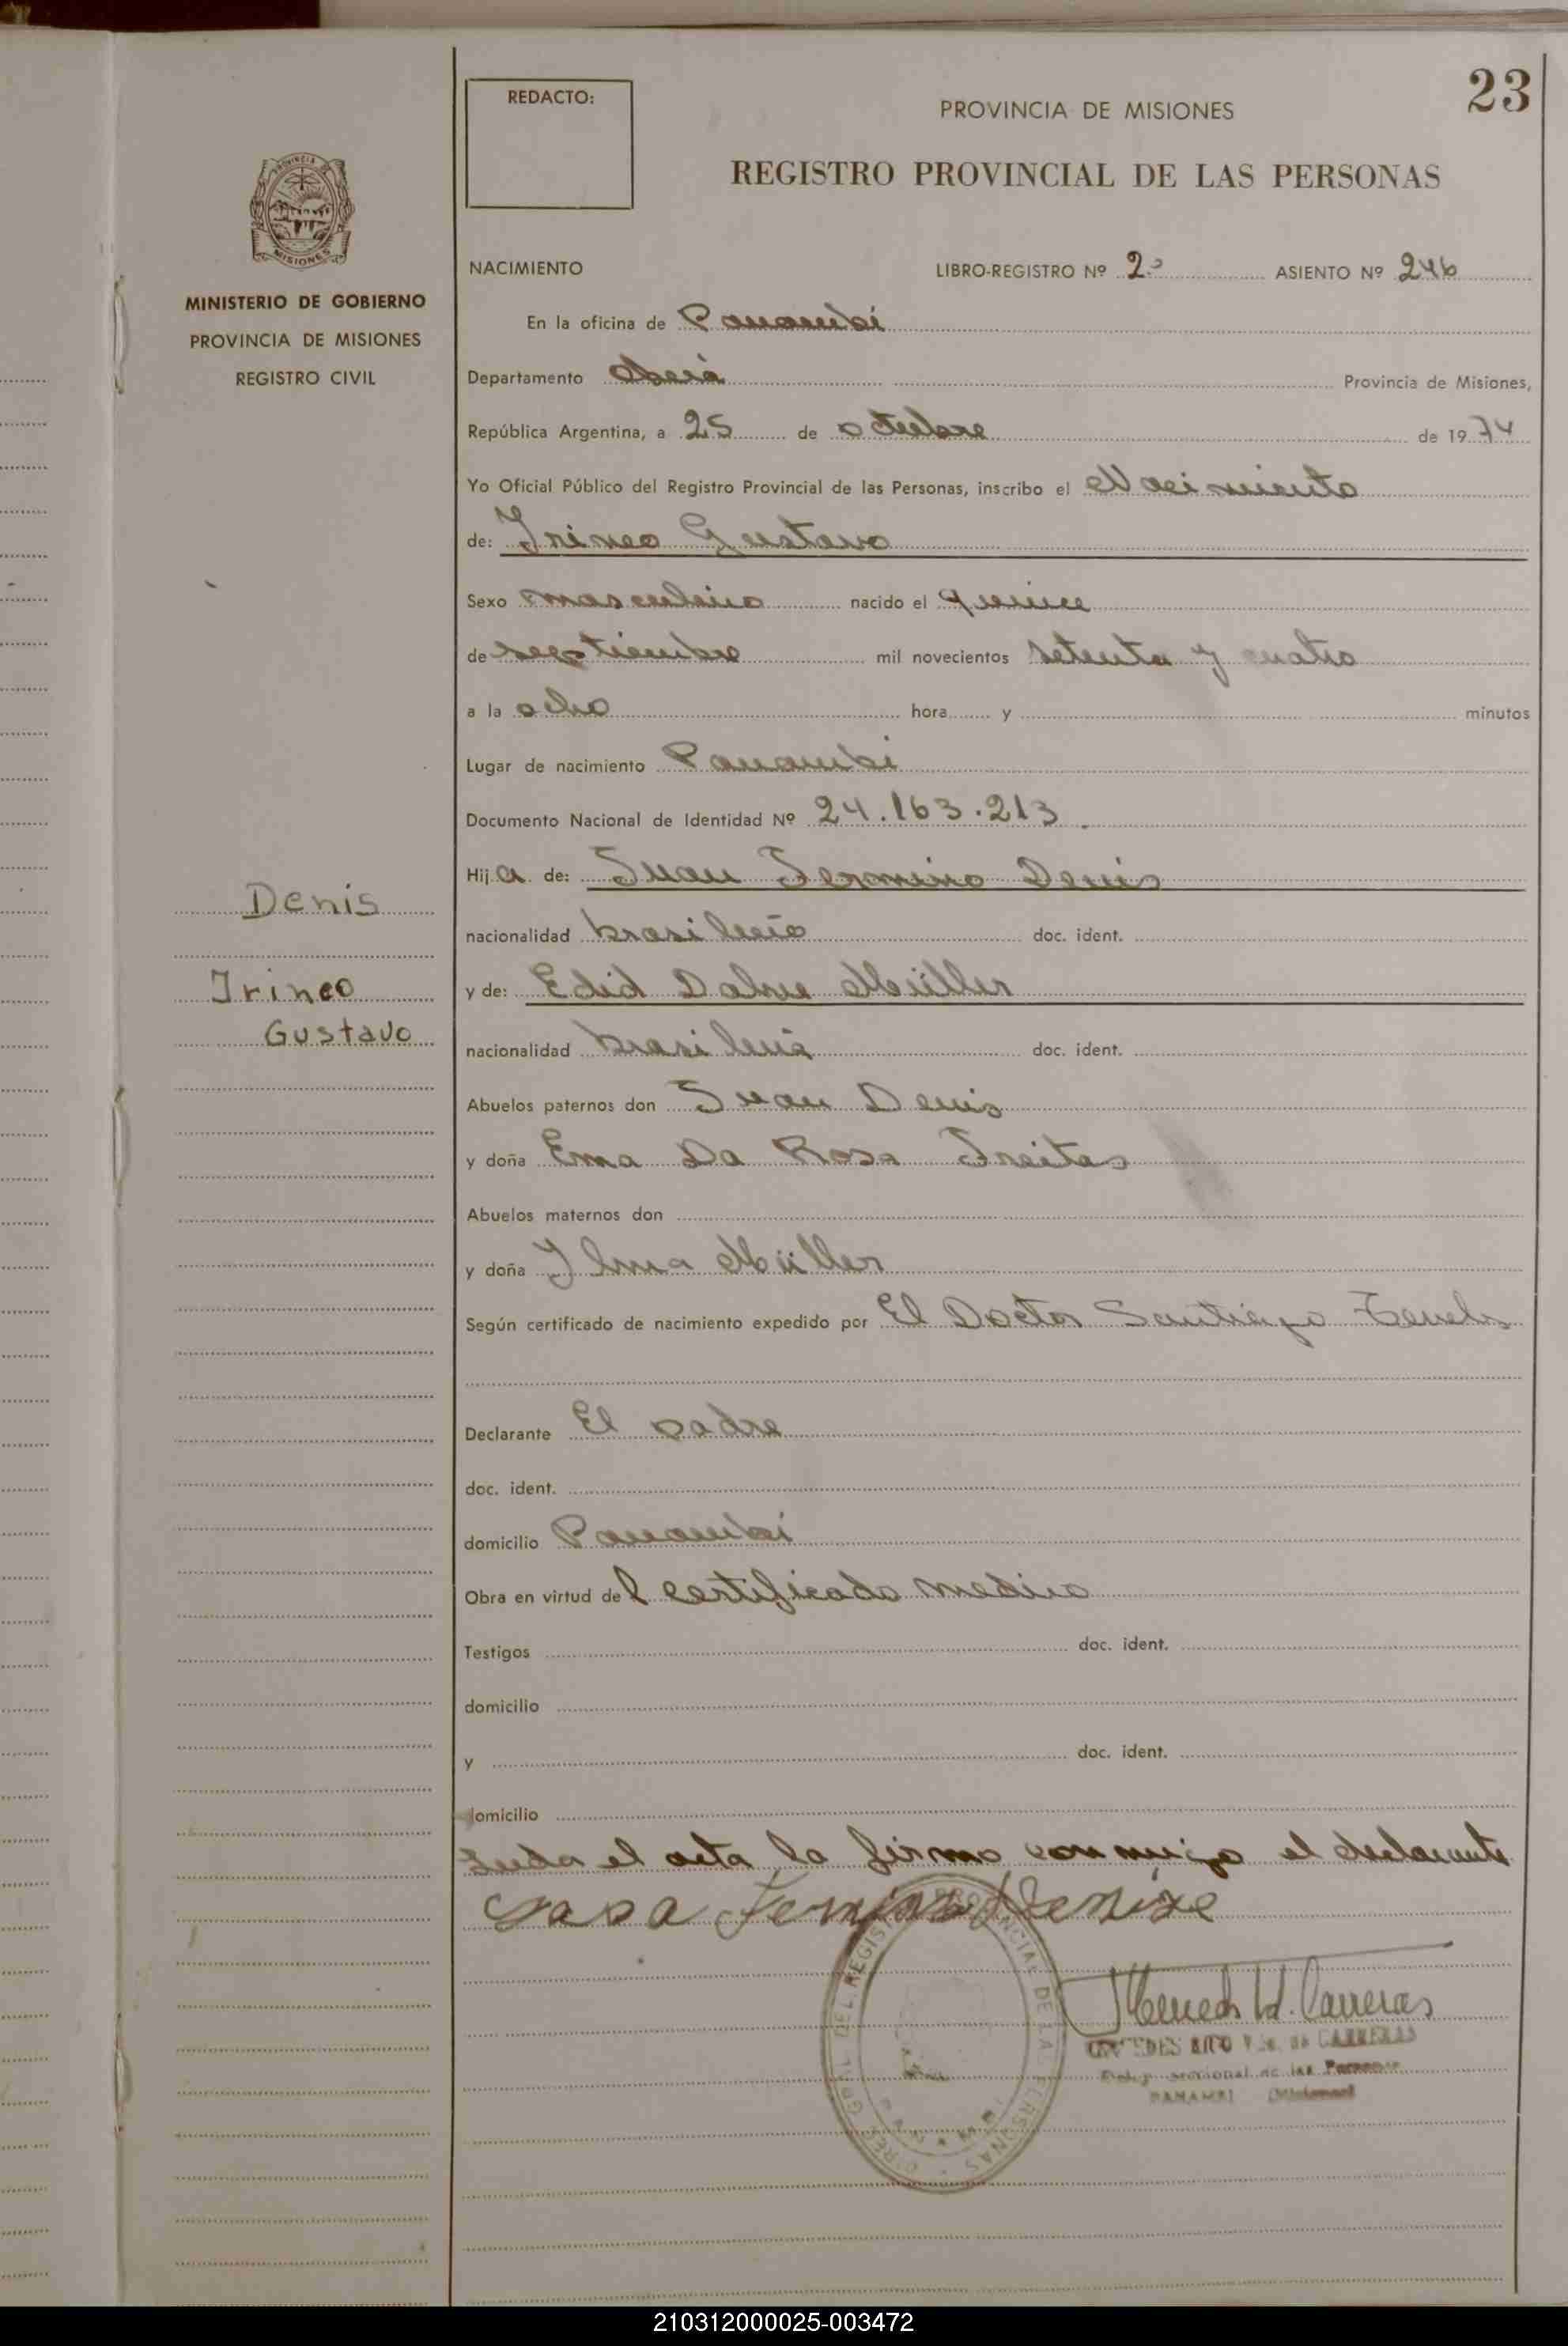 23
REDACTO:
PROVINCIA DE MISIONES
REGISTRO PROVINCIAL DE LAS PERSONAS
PROVINCIA DE MISIONES
MINISTERIO DE GOBIERNO
PROVINCIA DE MISIONES
REGISTRO CIVIL
NACIMIENTO LIBRO-REGISTRO Nº 2º ASIENTO Nº 246
En la oficina de Panambí
Departamento Oberá Provincia de Misiones,
República Argentina, a 25 de octubre de 1974
Yo Oficial Público del Registro Provincial de las Personas, inscribo el Nacimiento
de: Irineo Gustavo
Sexo masculino nacido el quince
de septiembre mil novecientos setenta y cuatro
a la ocho hora y minutos
Lugar de nacimiento Panambí
Documento Nacional de Identidad Nº 24.163.213.
Hija de: Juan Fermino Denis
Denis
nacionalidad brasileño doc. ident.
Irineo
y de: Edid Dalve Müller
Gustavo
nacionalidad brasileña doc. ident.
Abuelos paternos don Juan Denis
y doña Ema Da Rosa Freitas
Abuelos maternos don
y doña Ilma Müller
Según certificado de nacimiento expedido por El Doctor Santiago
Declarante El padre
doc. ident.
domicilio Panambí
Obra en virtud del certificado medico
Testigos doc. ident.
domicilio
y doc. ident.
domicilio
Leida el acta la firma conmigo el declarante
DIREC. GRAL. DEL REGISTRO PROVINCIAL DE LAS PERSONAS
CARRERAS
PANAMBI (Misiones)
210312000025-003472